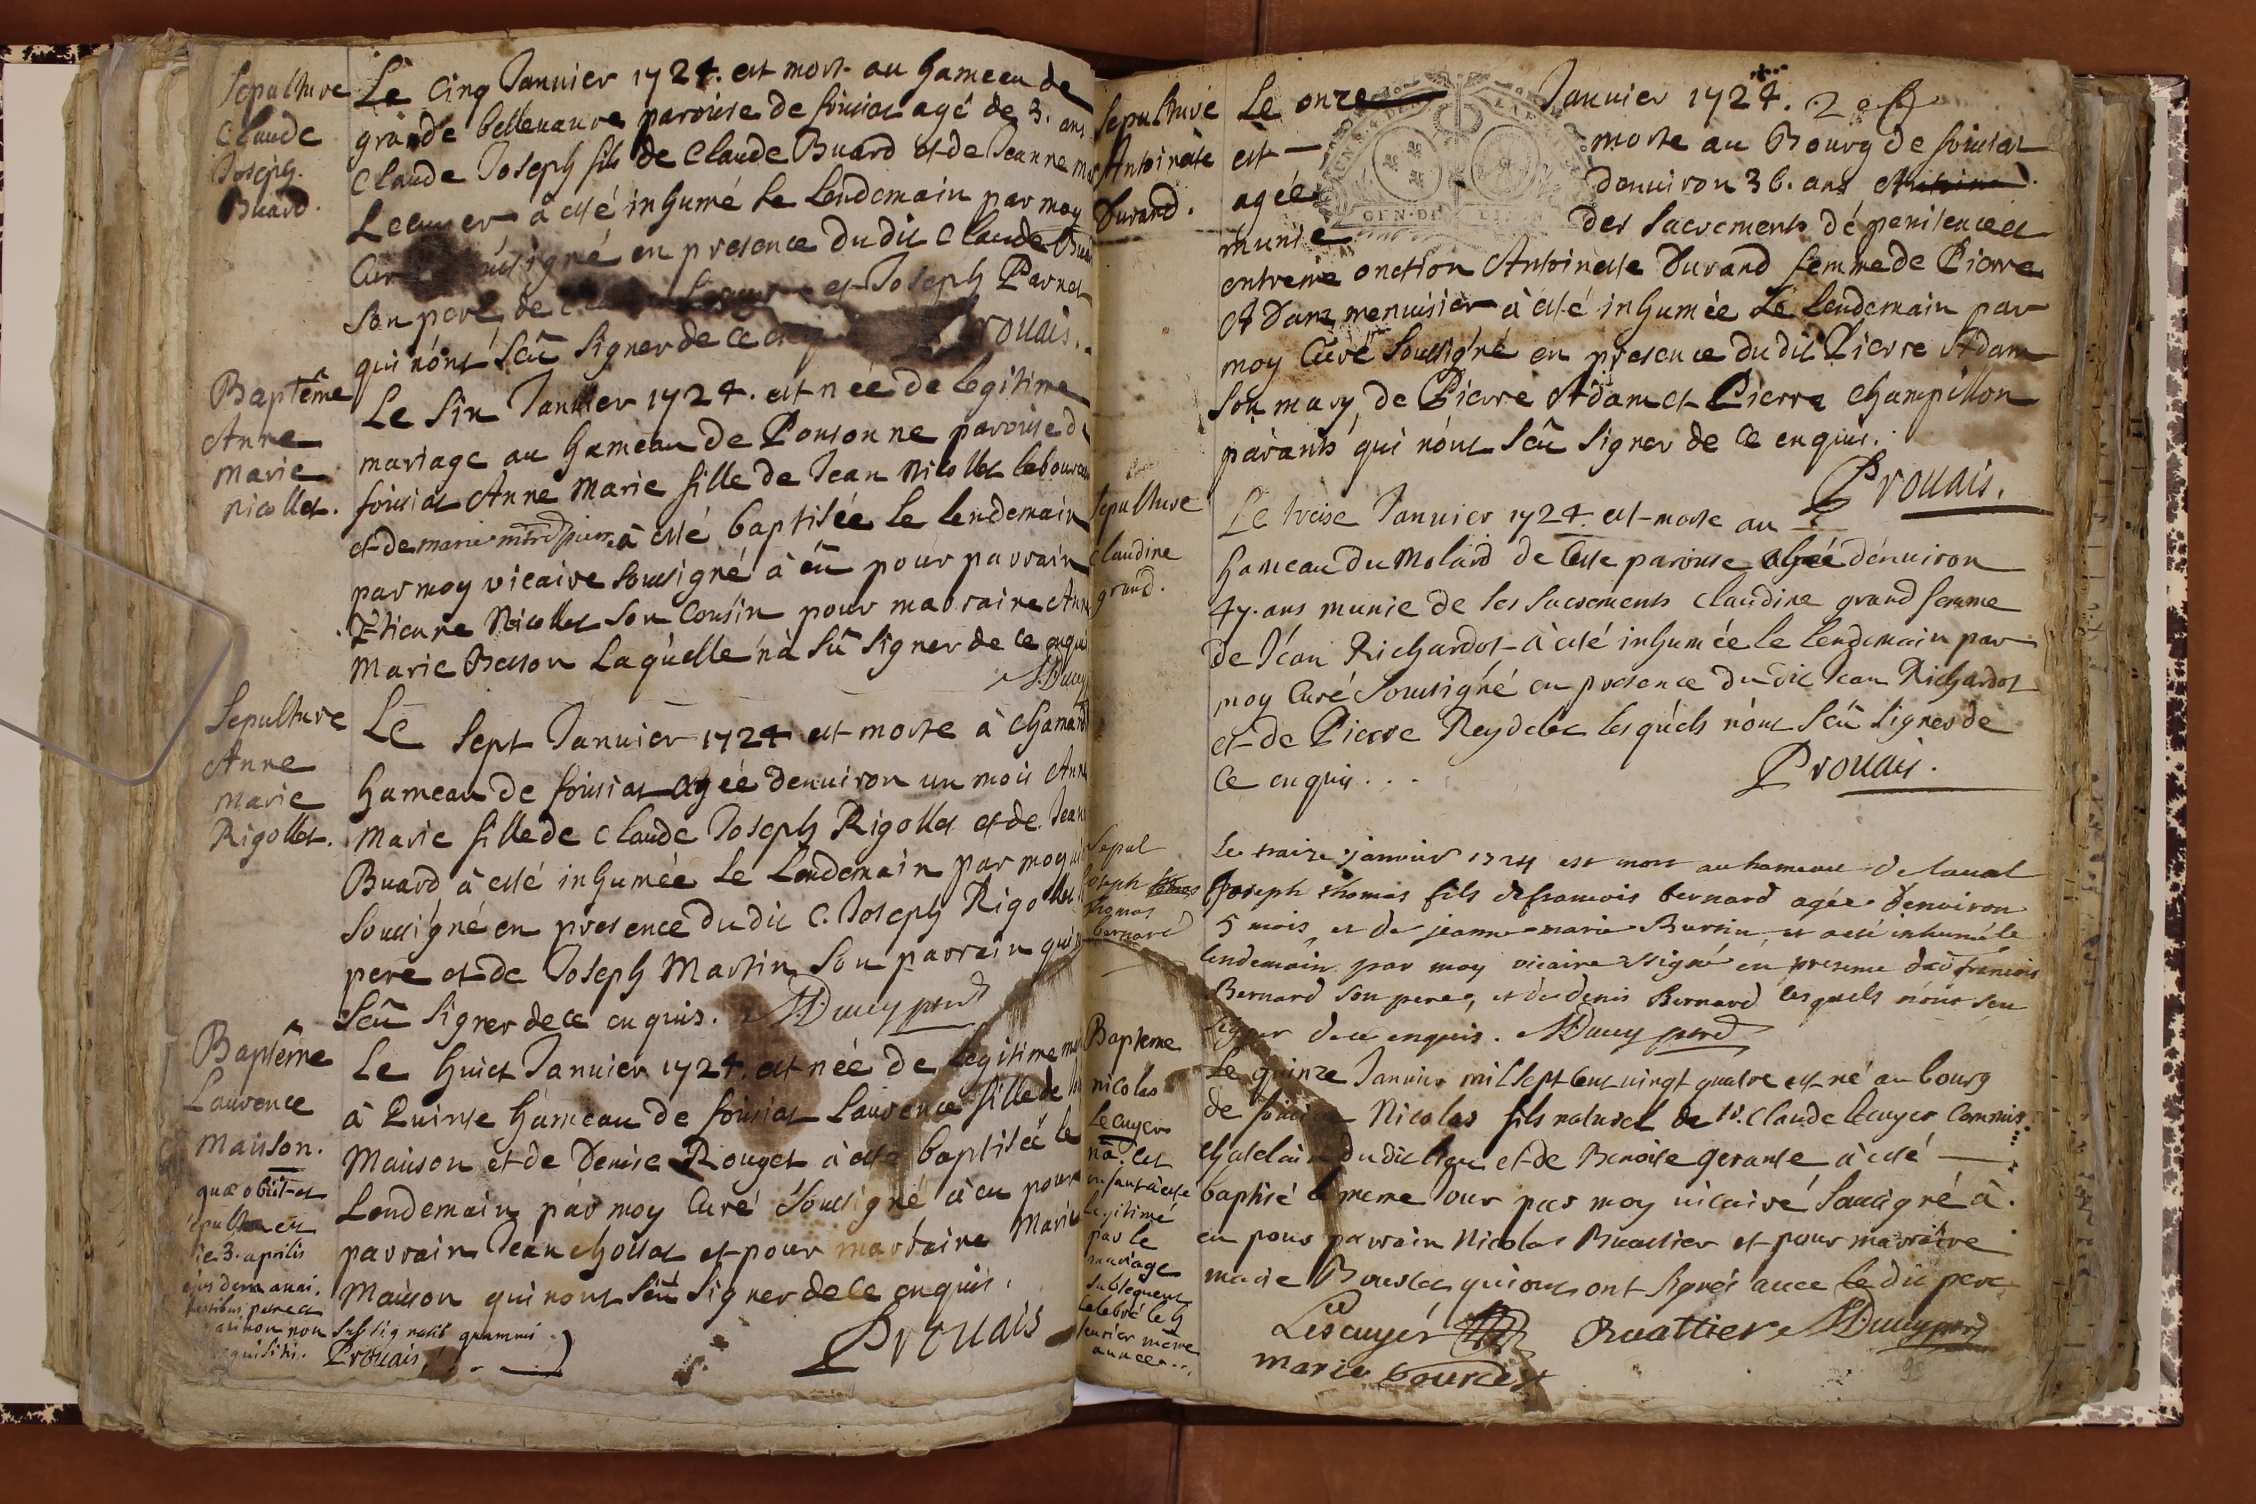 Sepulture
Claude
Joseph
Buard.
Le Cinq Januier 1724. est mort au hameau de
grande bellevauvre paroisse de foissiat agé de 3. ans
Claude Joseph fils de Claude Buard et de Jeanne
Lecuyer à esté inhumé le lendemain par moy
soussigné en presence dudit Claude
son pere, de et Joseph Parnet
qui n'ont sçû signer de ce
Baptême
Anne
Marie
nicollet.
Le six Januier 1724. est née de legitime
mariage au hameau de Ponsonne paroisse
foissiat Anne Marie fille de Jean Nicollet
et de marie à esté baptisée le lendemain
par moy vicaire soussigné à eû pour parrain
Etienne Nicollet son cousin pour marraine
Marie Besson laquelle n'à sû signer de ce
Sepulture
Anne
Marie
Rigollet.
Le sept Januier 1724 est morte à
hameau de foissiat agée denuiron un mois
Marie fille de Claude Joseph Rigollet et de
Buard à esté inhumée le lendemain par moy
soussigné en presence dudit C. Joseph
pere et de Joseph Martin son parrain
sçû signer de ce enquis. Ducuy
Baptême
Laurence
Maison.
quæ obiit et
3. aprilis
Prouais
Le huict Januier 1724. est née de legitime
à Quinte hameau de foissiat Laurence fille de
Maison et de Denise Rouget à esté baptisée le
Lendemain par moy Curé soussigné à eu pour
parrain Jean chossat et pour marraine Marie
Maison qui n'ont sçû signer de ce enquis.
Prouais
Sepulture
Antoinette
Durand.
Le onze Januier 1724.
est morte au Bourg de foissiat
agée denuiron 36. ans
munie des sacrements de penitence et
extreme onction Antoinette Durand femme de Pierre
Adam menuisier à esté inhumée le lendemain par
moy Curé soussigné en presence dudit Pierre Adam
son mary, de Pierre Adam et Pierre champillon
parants qui n'ont sçû signer de ce enquis.
Prouais.
Sepulture
Claudine
grand.
Le treise Januier 1724. est morte au
hameau du Molard de cette paroisse agée denuiron
47. ans munie de ses sacrements Claudine grand femme
de Jean Richardot à esté inhumée le lendemain par
moy Curé soussigné en presence dudit Jean Richardot
et de Pierre Reydelet lesquels n'ont sçû signer de
ce enquis...
Prouais.
Sepul
Joseph
thomas
bernard
Le traize januier 1724 est mort au hameau de laual
Joseph thomas fils de francois bernard agée denuiron
5 mois, et de jeanne marie Burtin, et a esté inhumé le
lendemain par moy vicaire en presence francois
Bernard son pere, et de denis Bernard lesquels n'ont sceu
signer de ce enquis. Ducuy
Bapteme
nicolas
Lecuyer
enfant à esté
legitimé
par le
mariage
subsequent
celebré le
feurier meme
année...
Le quinze Januier mil sept cent vingt quatre est né au bourg
de foissiat Nicolas fils naturel de Sr. Claude Lecuyer Commis
chatelain dudit lieu et de Benoite gerante à esté
baptisé le meme Jour par moy uicaire soussigné à
eu pour parrain Nicolas Buattier et pour marraine
marie qui ont signés auec le dit pere
Lescuyer Buattier Ducuy
marie bourcet